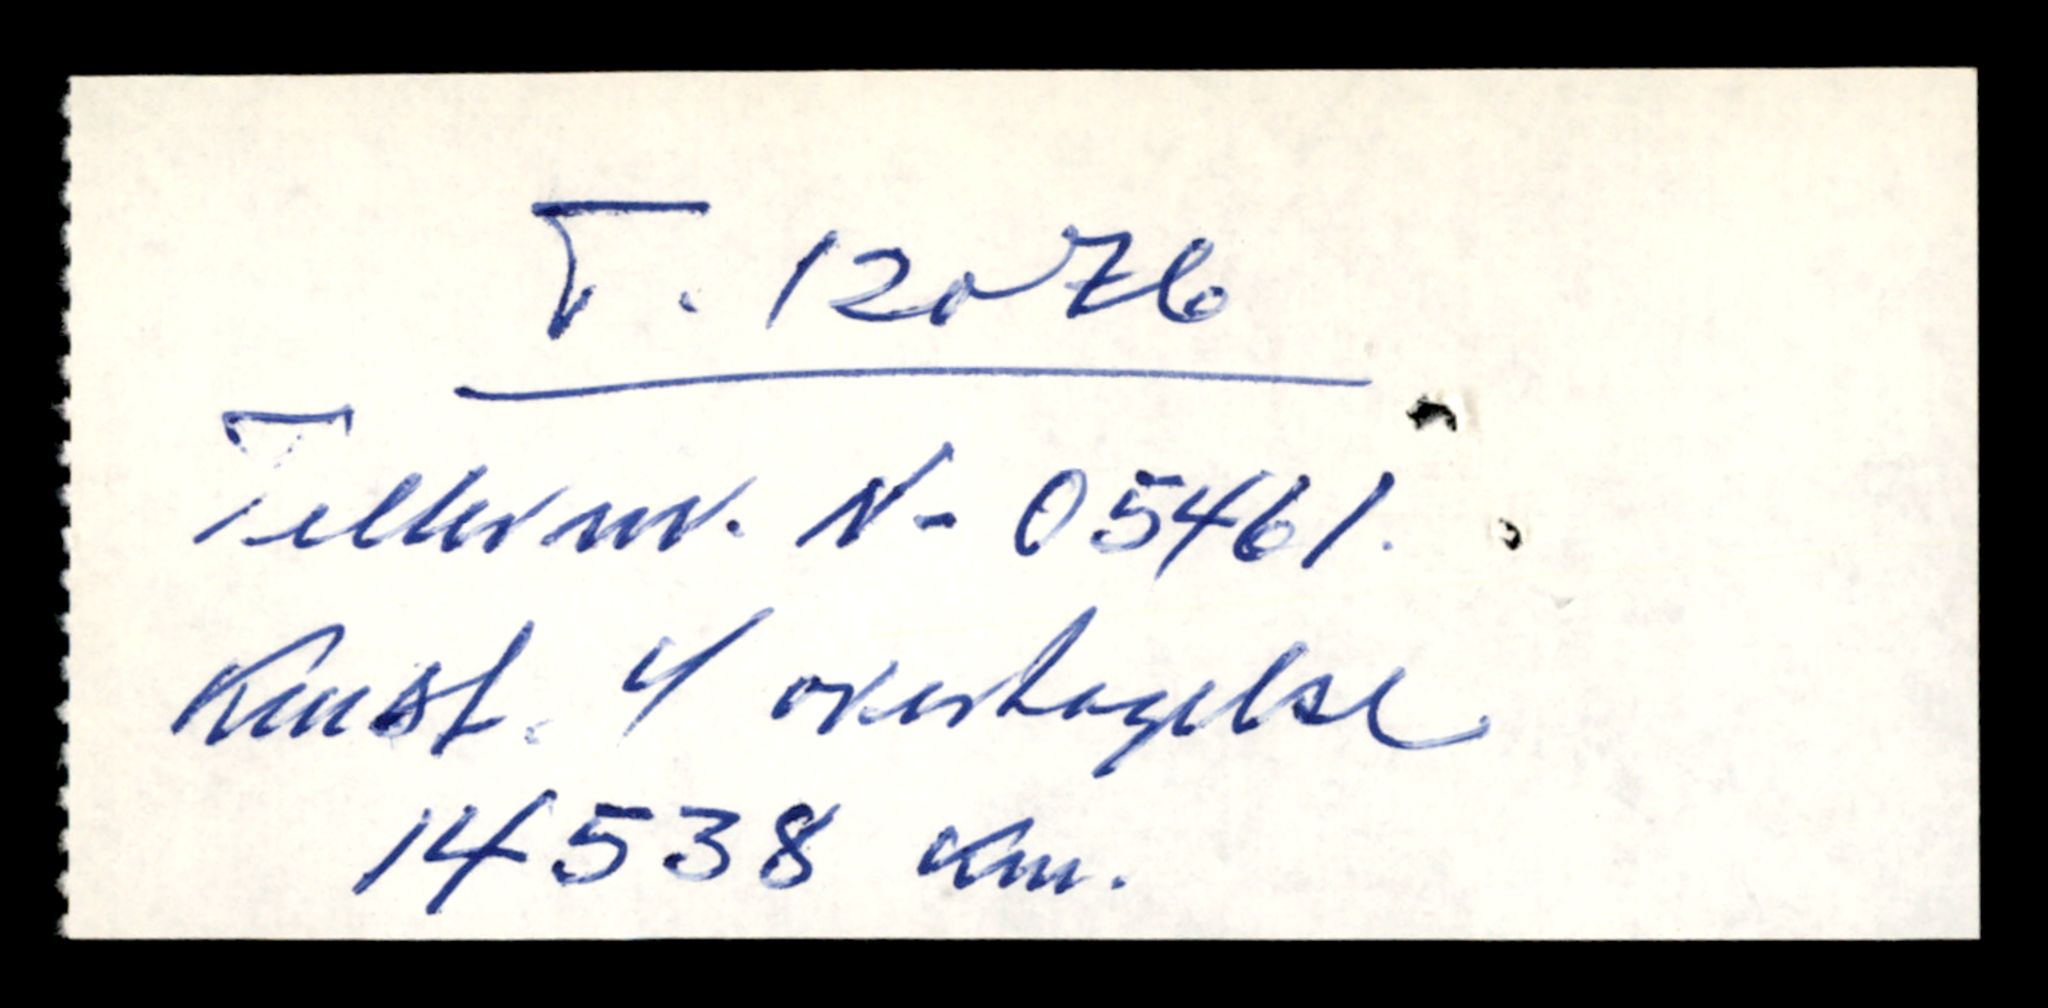 T. 12076
Tellernr. N- 05461.
Kmst. v/ overtagelse
14538 Km.